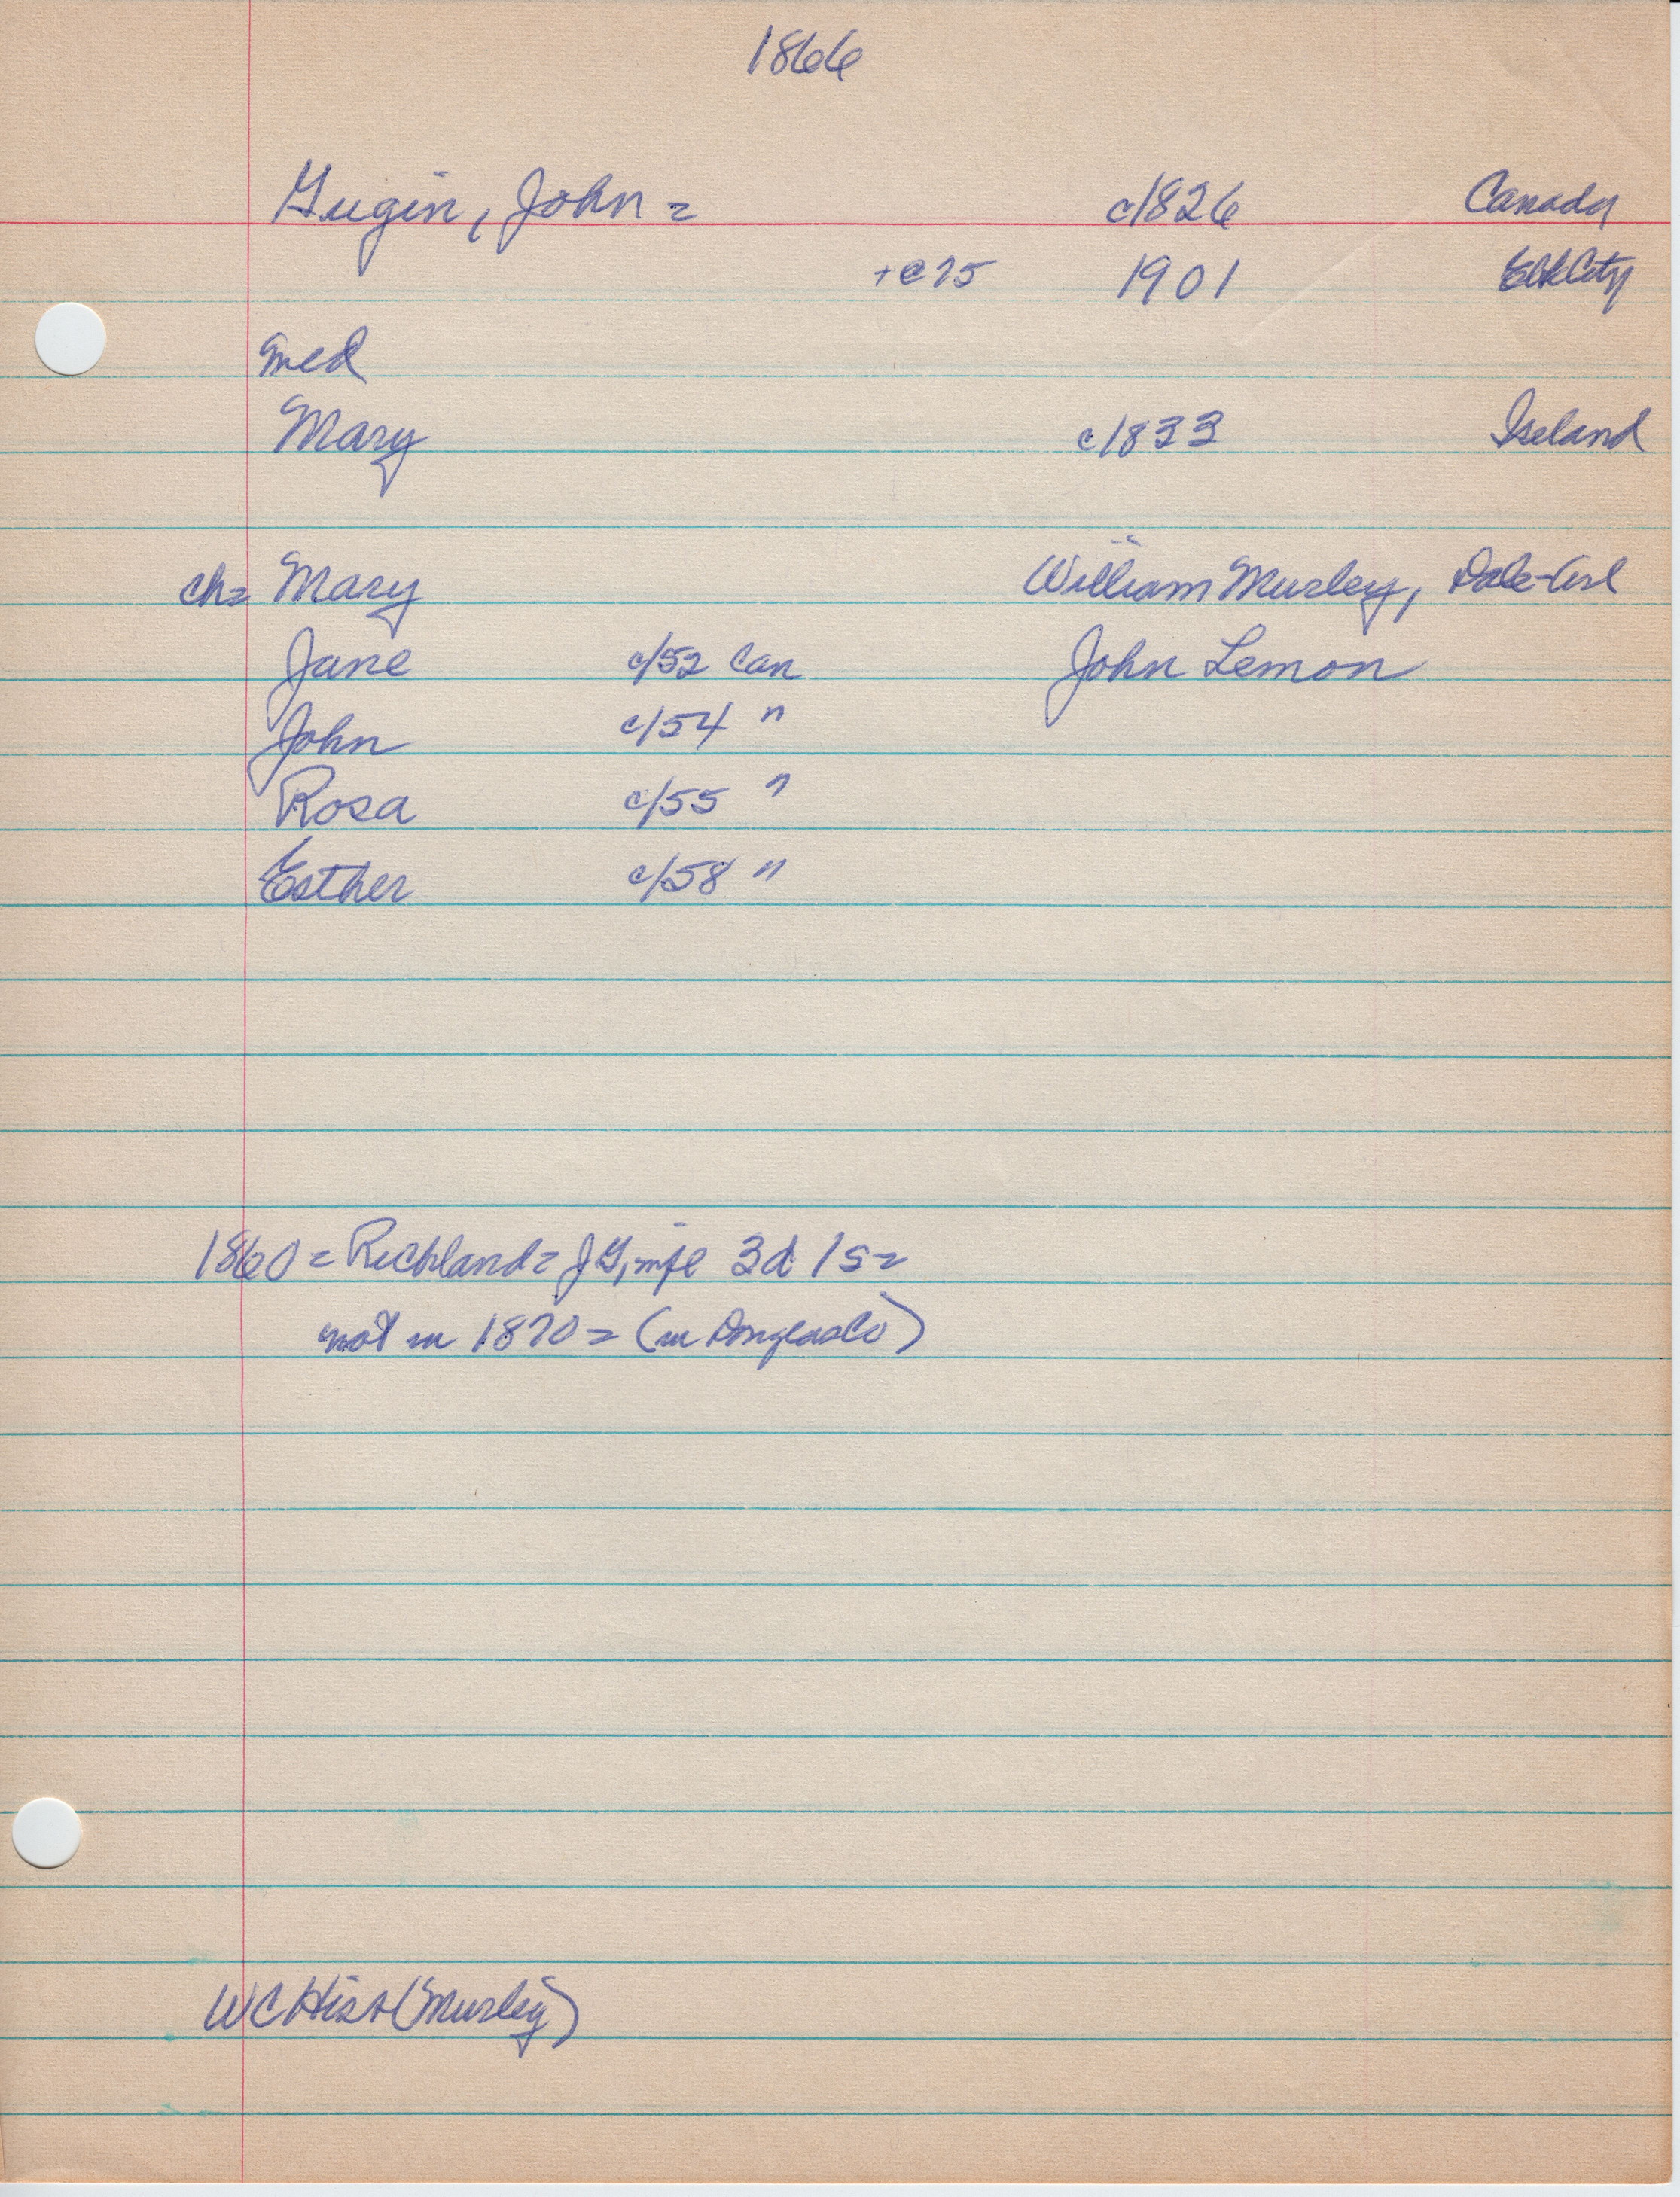 1866
Gugin, John = c1826 Canada
+ c75 1901 Elk City
med
Mary c1833 Ireland
ch= Mary William Murley, Dale-Arl
Jane c/52 Can John Lemon
John c/54 "
Rosa c/55 "
Esther c/58 "
1860 = Richland = JG, mfe 3d 1s =
not in 1870 = (in Douglas Co)
WC Hist (Murley)